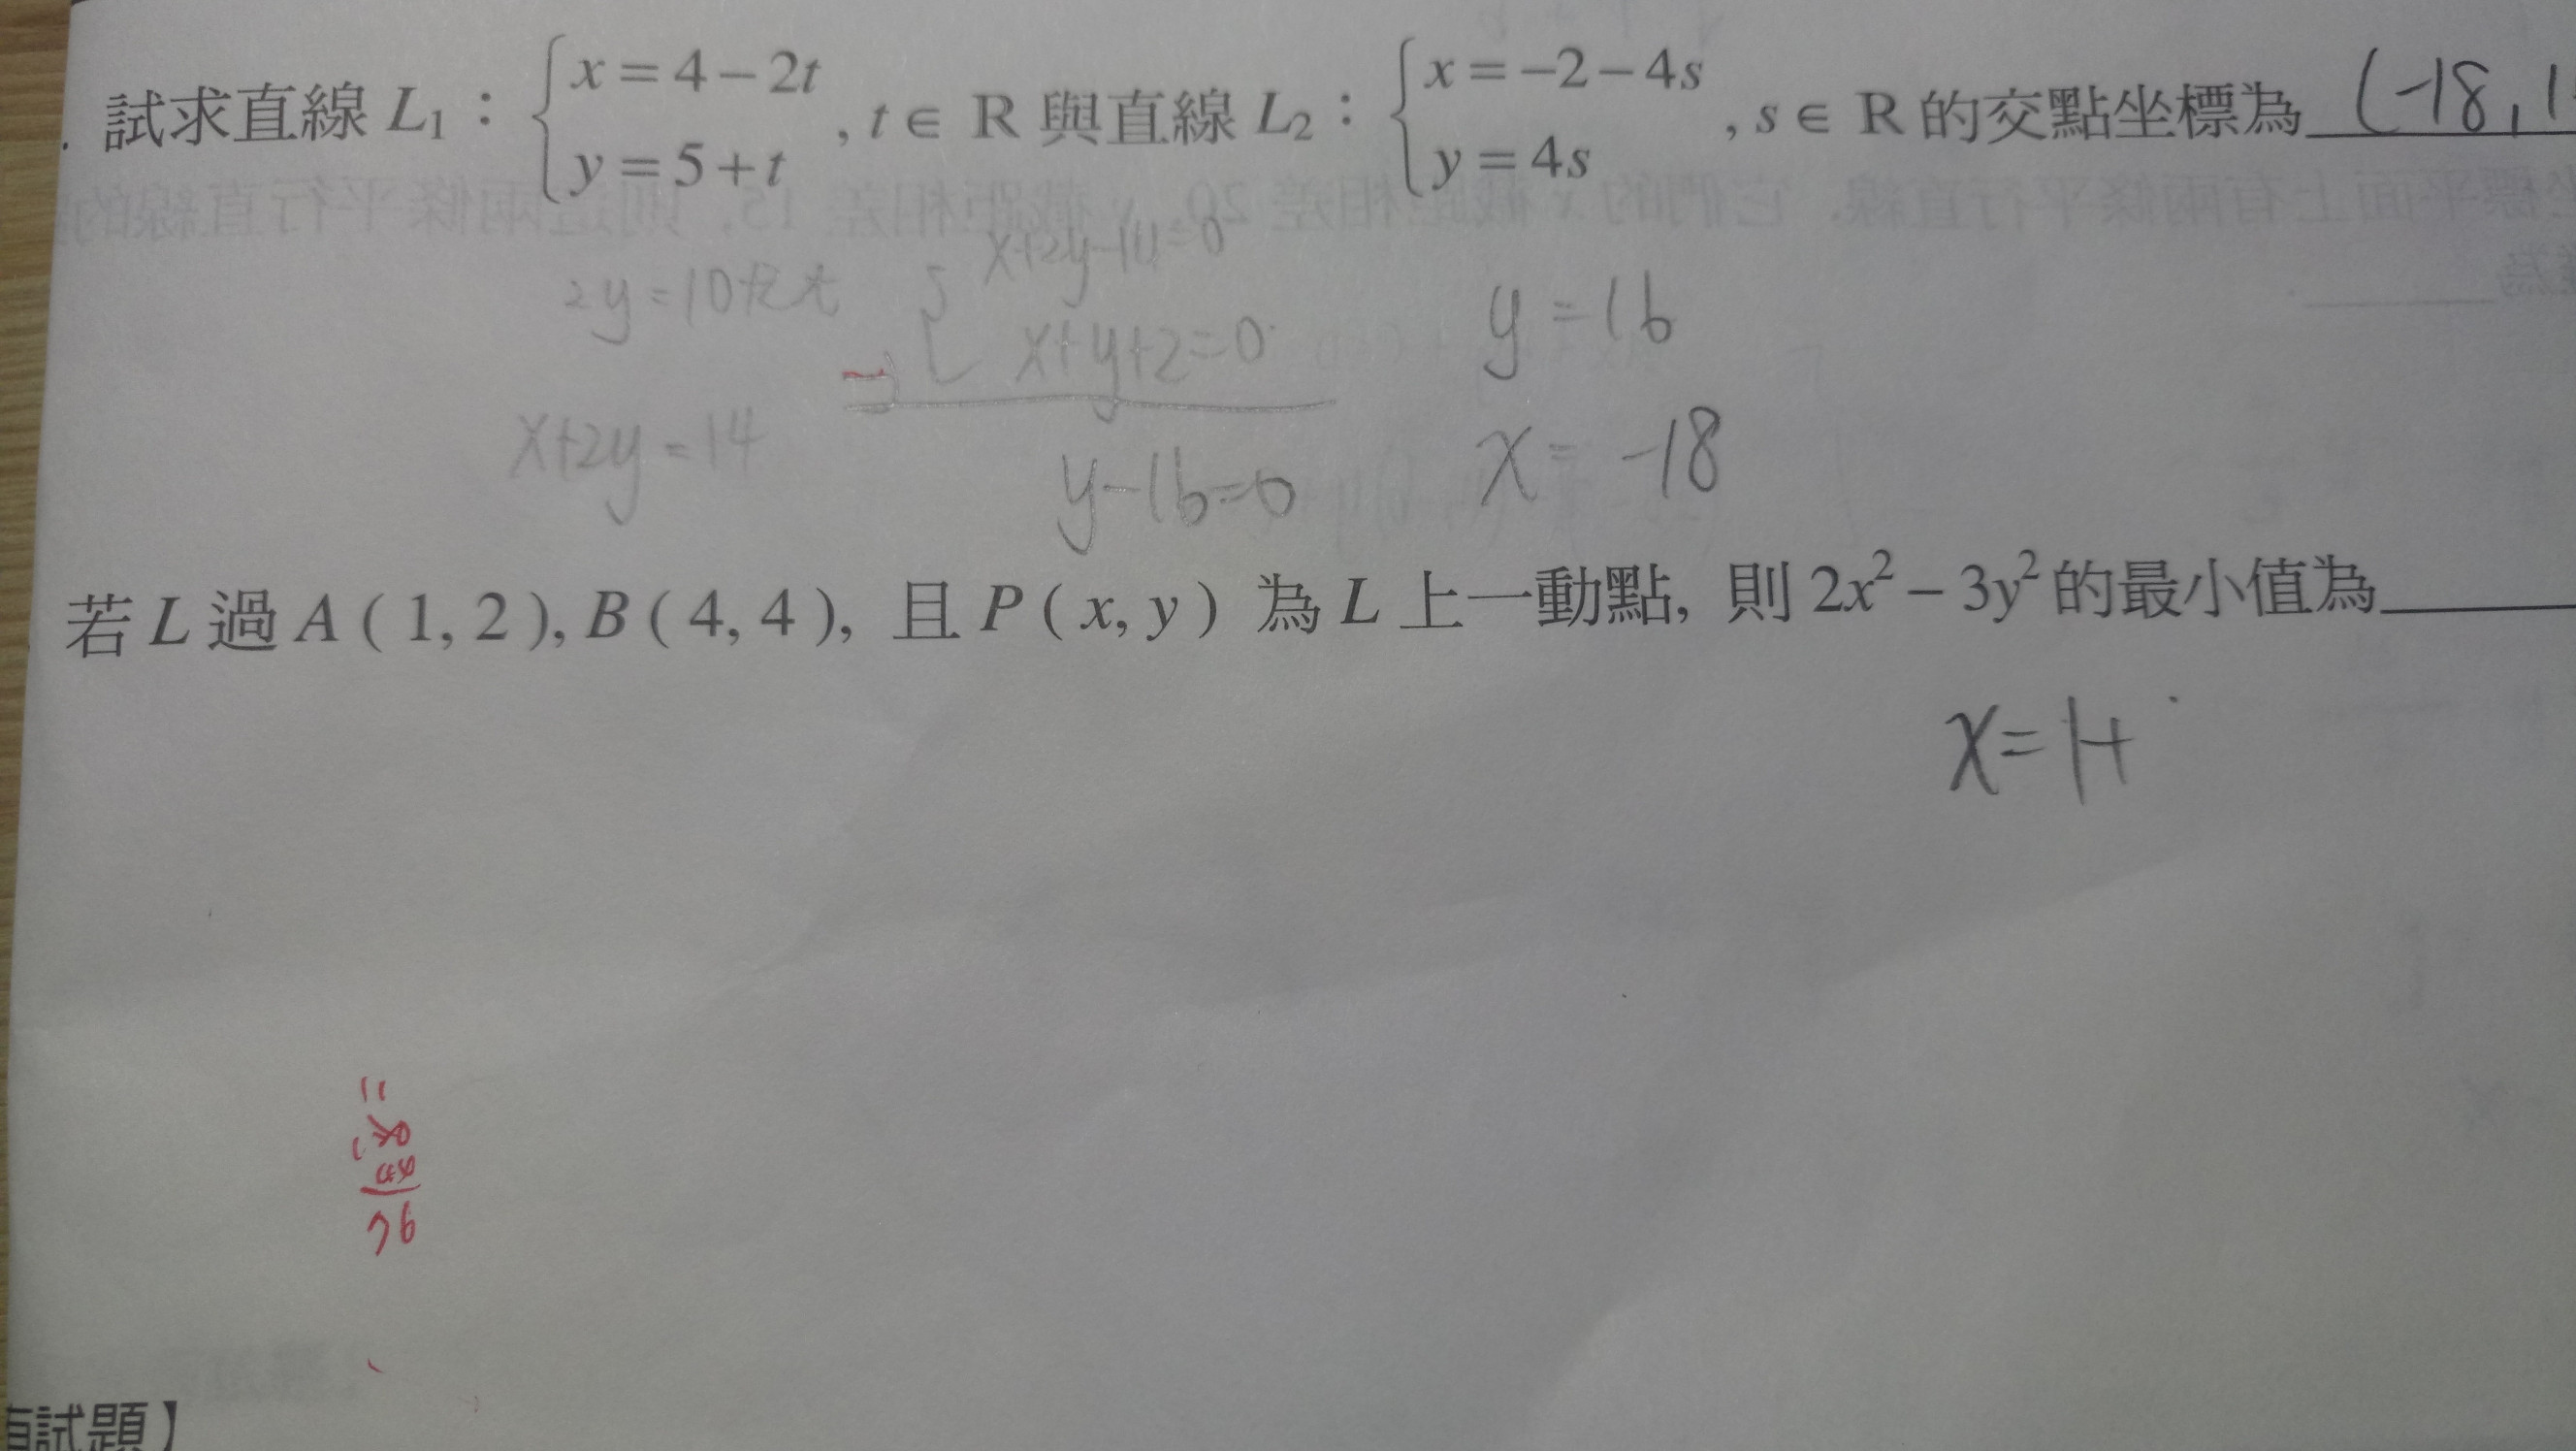 . 試求直線 L₁：{ x = 4 − 2t , y = 5 + t , t ∈ R 與直線 L₂：{ x = −2 − 4s , y = 4s , s ∈ R 的交點坐標為 (-18, 1
x+2y-14=0
2y=10+2t
x+y+2=0
y=16
x+2y=14
y-16=0
x=-18
若 L 過 A ( 1, 2 ), B ( 4, 4 ), 且 P ( x, y ) 為 L 上一動點, 則 2x² − 3y² 的最小值為
x=1+
試題】